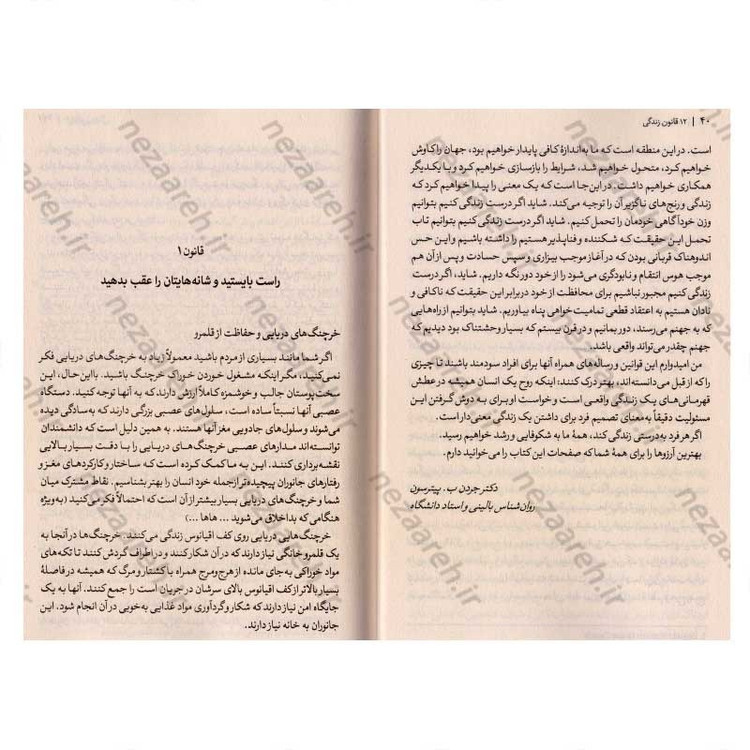 ۴۰ | ۱۲ قانون زندگی
است. در این منطقه است که ما به‌اندازهٔ کافی پایدار خواهیم بود، جهان را کاوش
خواهیم کرد، متحول خواهیم شد، شرایط را بازسازی خواهیم کرد و با یکدیگر
همکاری خواهیم داشت. در این‌جا است که یک معنی را پیدا خواهیم کرد که
زندگی و رنج‌های ناگزیر آن را توجیه می‌کند. شاید اگر درست زندگی کنیم بتوانیم
وزن خودآگاهی خودمان را تحمل کنیم. شاید اگر درست زندگی کنیم بتوانیم تاب
تحمل این حقیقت که شکننده و فناپذیر هستیم را داشته باشیم و این حس
اندوهناک قربانی بودن که در آغاز موجب بیزاری و سپس حسادت و پس از آن هم
موجب هوس انتقام و نابودگری می‌شود را از خود دور نگه داریم. شاید، اگر درست
زندگی کنیم مجبور نباشیم برای محافظت از خود در برابر این حقیقت که ناکافی و
نادان هستیم به اعتقاد قطعی تمامیت‌خواهی پناه بیاوریم. شاید بتوانیم از راه‌هایی
که به جهنم می‌رسند، دور بمانیم و در قرن بیستم که بسیار وحشتناک بود دیدیم که
جهنم چقدر می‌تواند واقعی باشد.
من امیدوارم این قوانین و رساله‌های همراه آنها برای افراد سودمند باشند تا چیزی
را که از قبل می‌دانسته‌اند، بهتر درک کنند: اینکه روح یک انسان همیشه در عطش
قهرمانی‌های یک زندگی واقعی است و خواست او برای به دوش گرفتن این
مسئولیت دقیقاً به‌معنای تصمیم فرد برای داشتن یک زندگی معنی‌دار است.
اگر هر فرد به‌درستی زندگی کند، همهٔ ما به شکوفایی و رشد خواهیم رسید.
بهترین آرزوها را برای همهٔ شما که صفحات این کتاب را می‌خوانید دارم.
دکتر جردن ب. پیترسون
روان‌شناس بالینی و استاد دانشگاه
قانون ۱
راست بایستید و شانه‌هایتان را عقب بدهید
خرچنگ‌های دریایی و حفاظت از قلمرو
اگر شما مانند بسیاری از مردم باشید معمولاً زیاد به خرچنگ‌های دریایی فکر
نمی‌کنید، مگر اینکه مشغول خوردن خوراک خرچنگ باشید. با این حال، این
سخت‌پوستان جالب و خوشمزه کاملاً ارزش دارند که به آنها توجه کنید. دستگاه
عصبی آنها نسبتاً ساده است، سلول‌های عصبی بزرگی دارند که به‌سادگی دیده
می‌شوند و سلول‌های جادویی مغز آنها هستند. به همین دلیل است که دانشمندان
توانسته‌اند مدارهای عصبی خرچنگ‌های دریایی را با دقت بسیار بالایی
نقشه‌برداری کنند. این به ما کمک کرده است که ساختار و کارکردهای مغز و
رفتارهای جانوران پیچیده‌تر از جمله خود انسان را بهتر بشناسیم. نقاط مشترک میان
شما و خرچنگ‌های دریایی بسیار بیشتر از آن است که احتمالاً فکر می‌کنید (به‌ویژه
هنگامی که بداخلاق می‌شوید ... هاها ...)
خرچنگ‌هایی دریایی روی کف اقیانوس زندگی می‌کنند. خرچنگ‌ها در آنجا به
یک قلمرو خانگی نیاز دارند که در آن شکار کنند و در اطراف گردش کنند تا تکه‌های
مواد خوراکی به‌جای مانده از هرج‌ومرج همراه با کشتار و مرگ که همیشه در فاصلهٔ
بسیار بالاتر از کف اقیانوس بالای سرشان در جریان است را جمع کنند. آنها به یک
جایگاه امن نیاز دارند که شکار و گردآوری مواد غذایی به‌خوبی در آن انجام شود. این
جانوران به خانه نیاز دارند.
nezaareh.ir